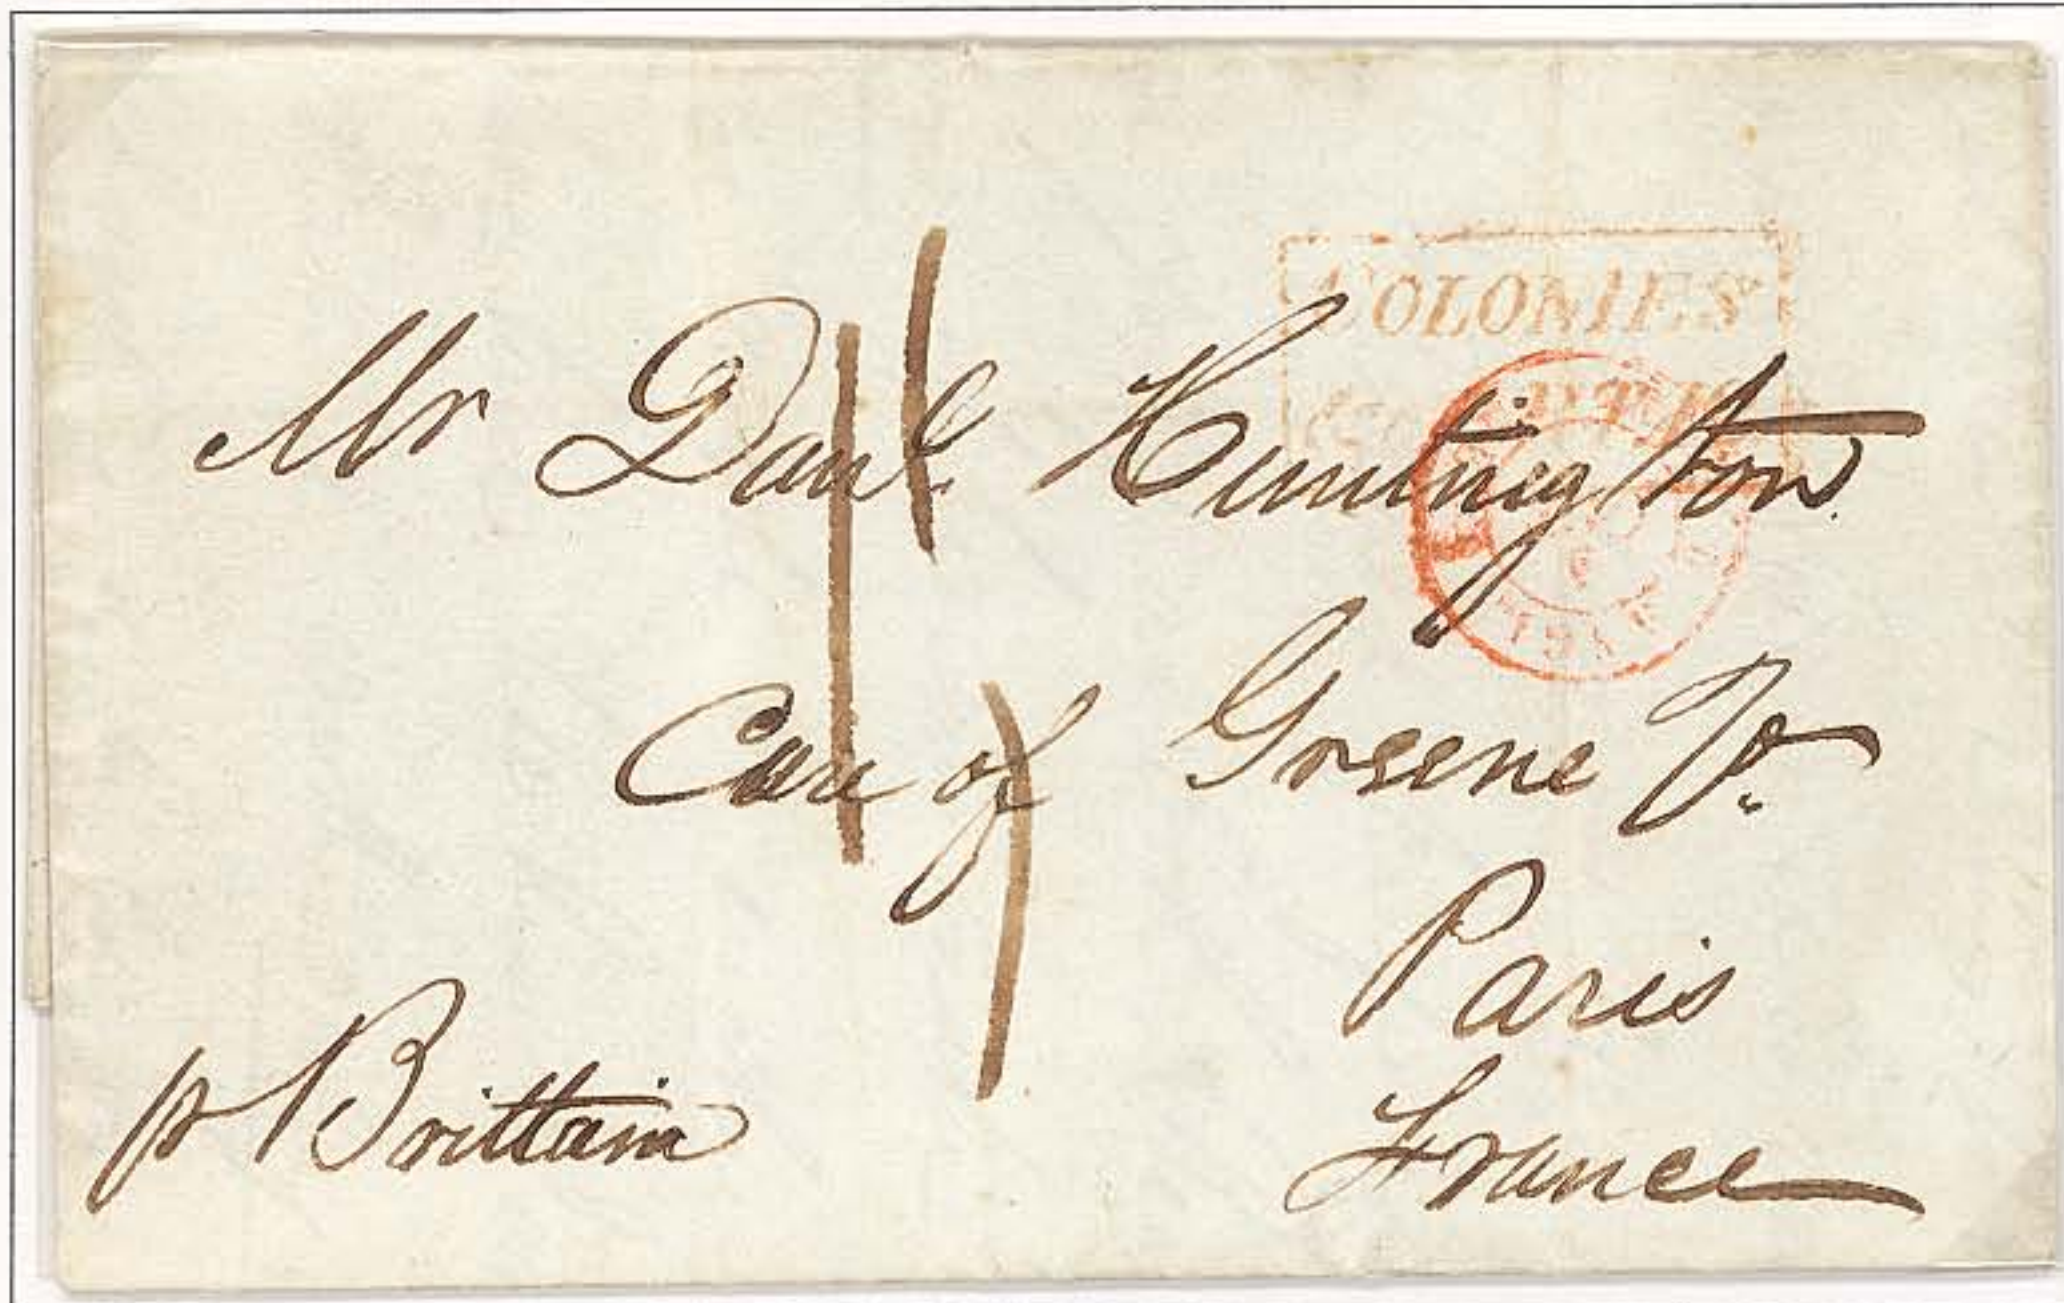 COLONIES
Mr Danl. Huntington
Care of Greene
Paris
France
p Brittain